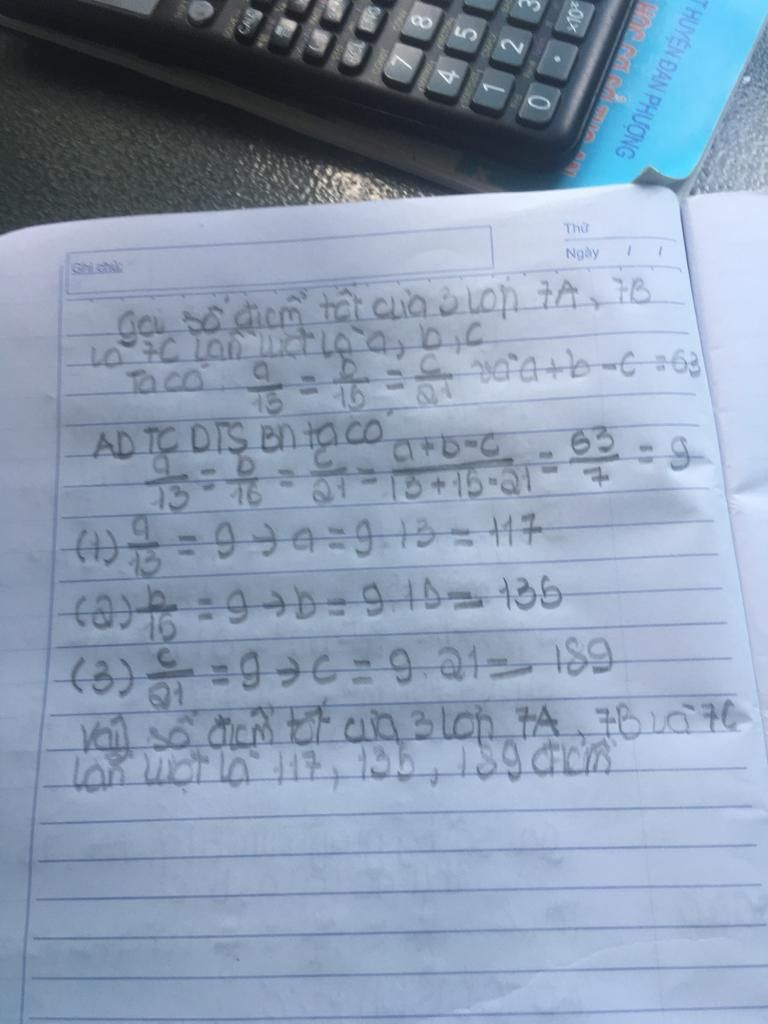 7 8
4 5
1 2 3
0 . ×10ˣ
T HUYỆN ĐAN PHƯỢNG
Ghi chú:
Thứ
Ngày / /
Gọi số điểm tốt của 3 lớp 7A, 7B
và 7C lần lượt là a, b, c
Ta có a/13 = b/15 = c/21 và a+b-c = 63
ADTCDTSBN ta có
a/13 = b/15 = c/21 = a+b-c/13+15-21 = 63/7 = 9
(1) a/13 = 9 → a = 9.13 = 117
(2) b/15 = 9 → b = 9.15 = 135
(3) c/21 = 9 → c = 9.21 = 189
Vậy số điểm tốt của 3 lớp 7A, 7B và 7C
lần lượt là 117, 135, 189 điểm